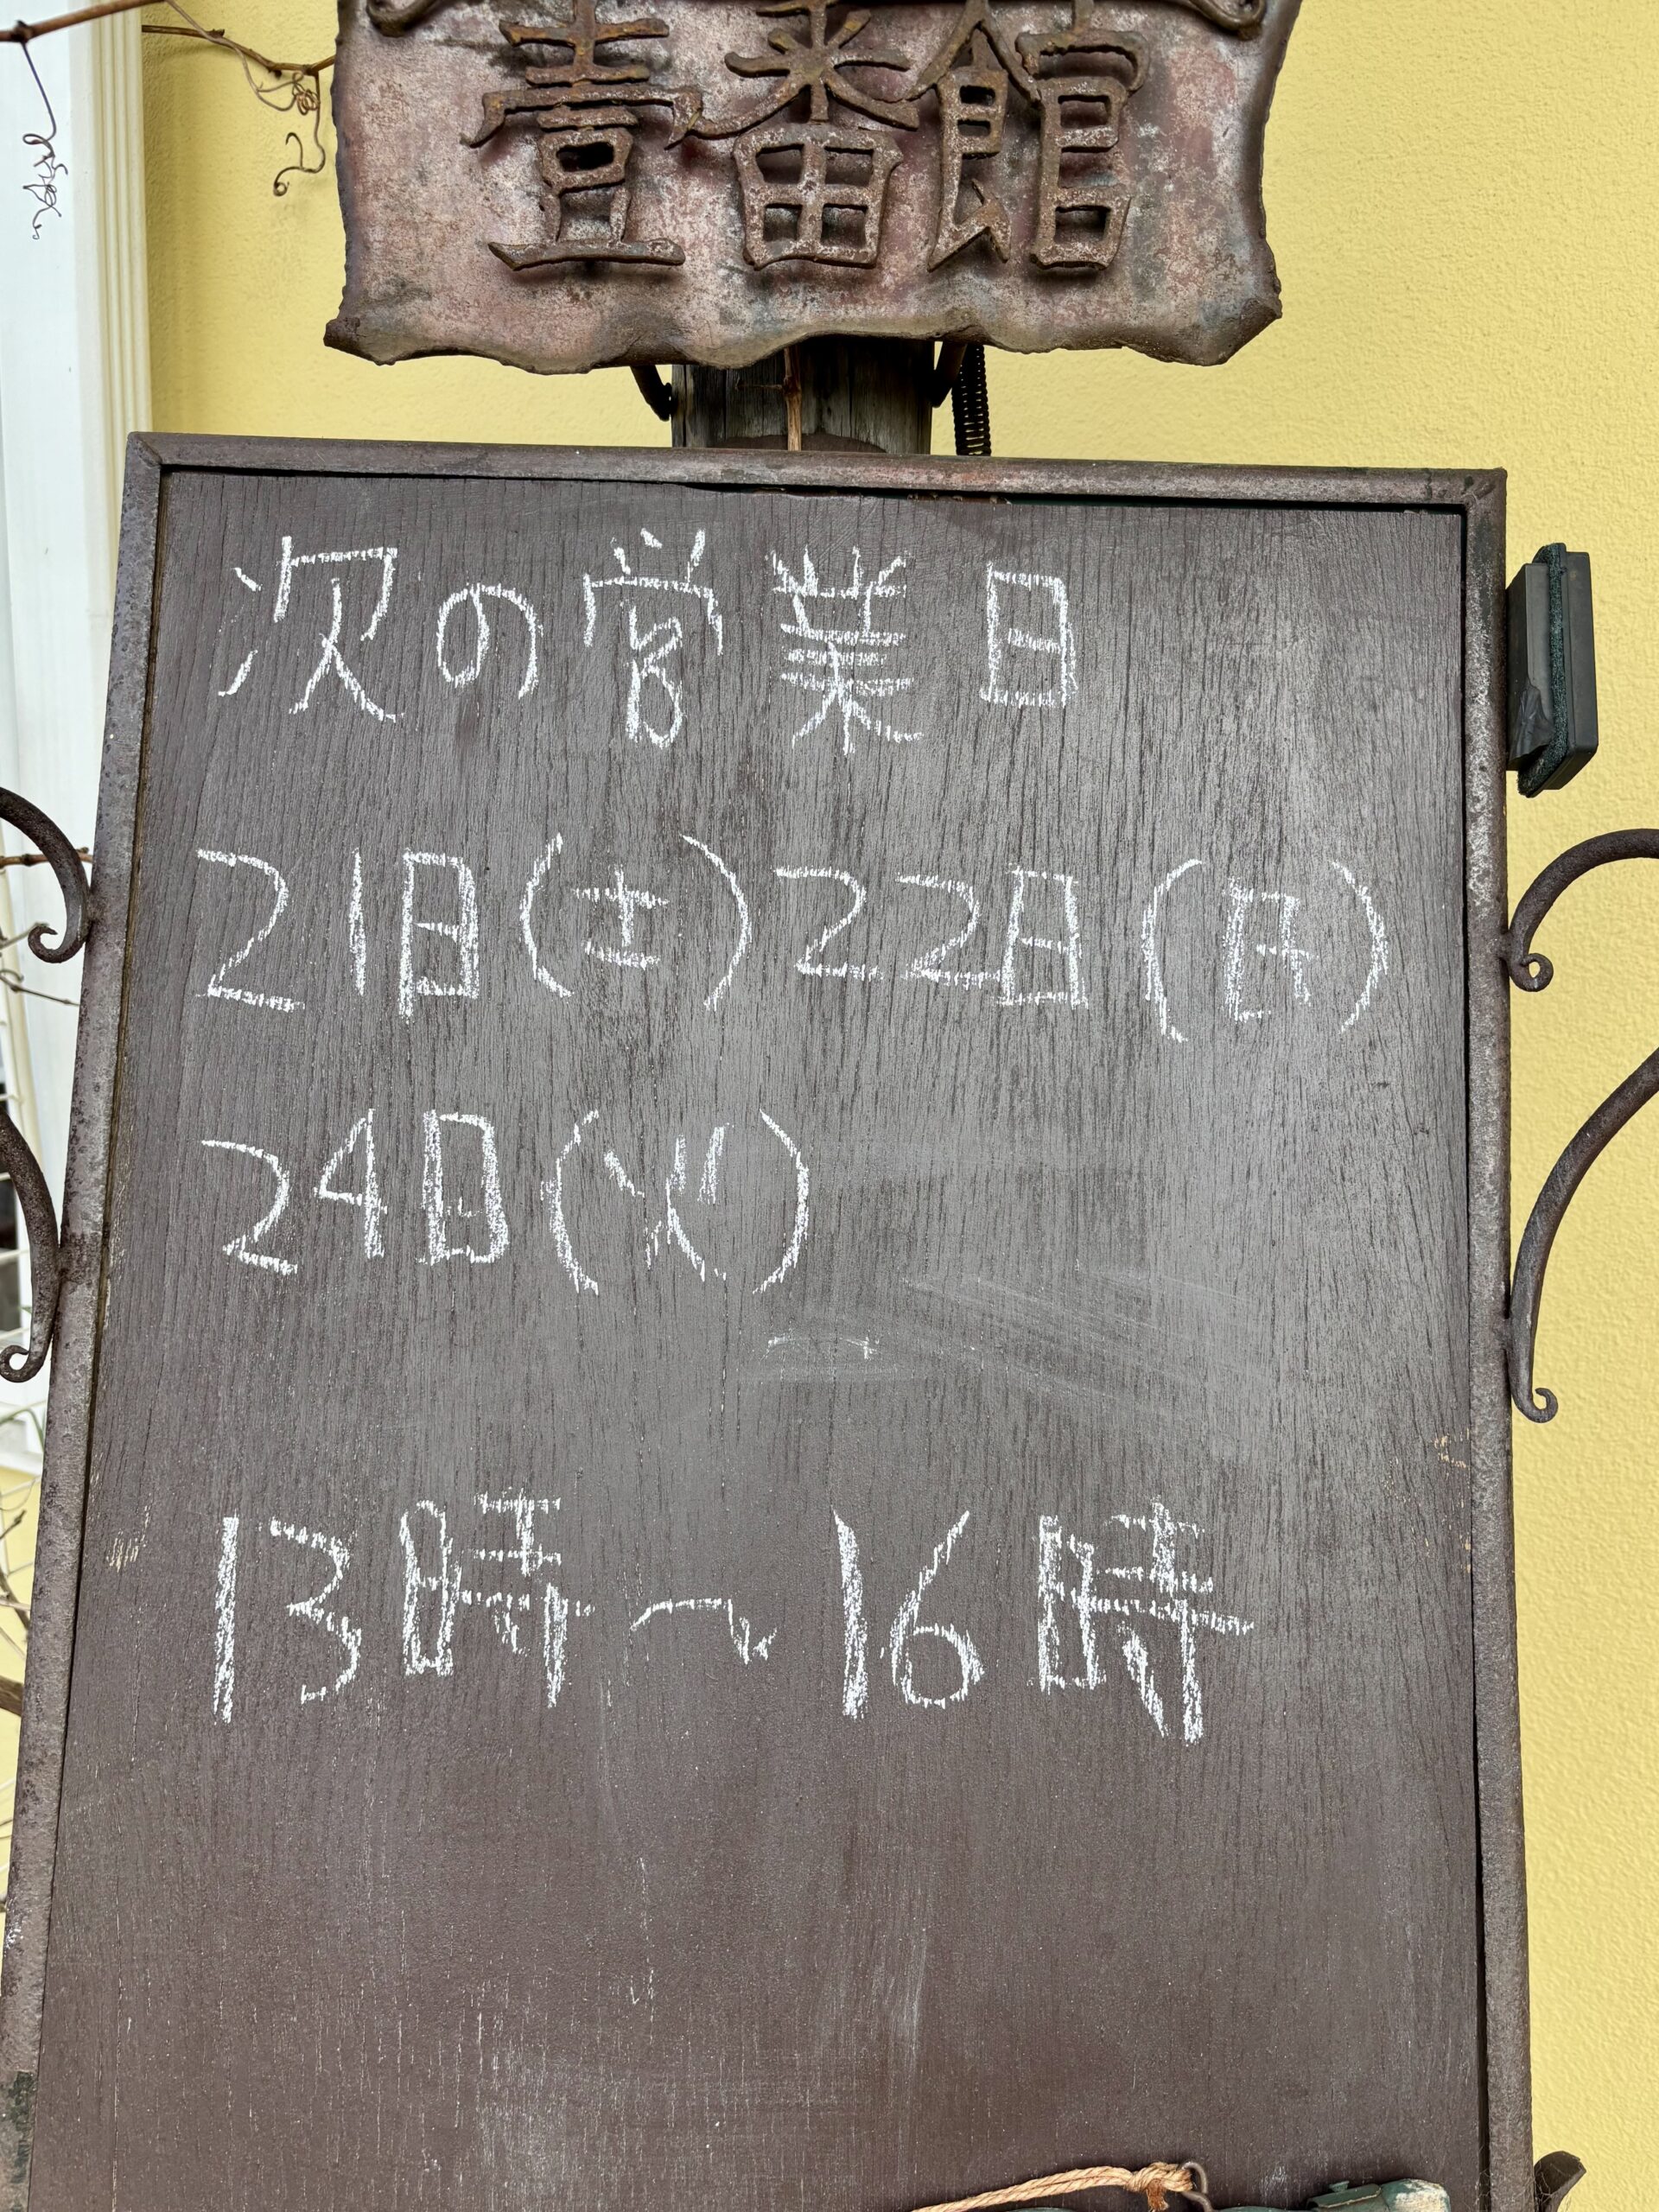 壹番館
次の営業日
21日(土)22日(日)
24日(火)
13時〜16時